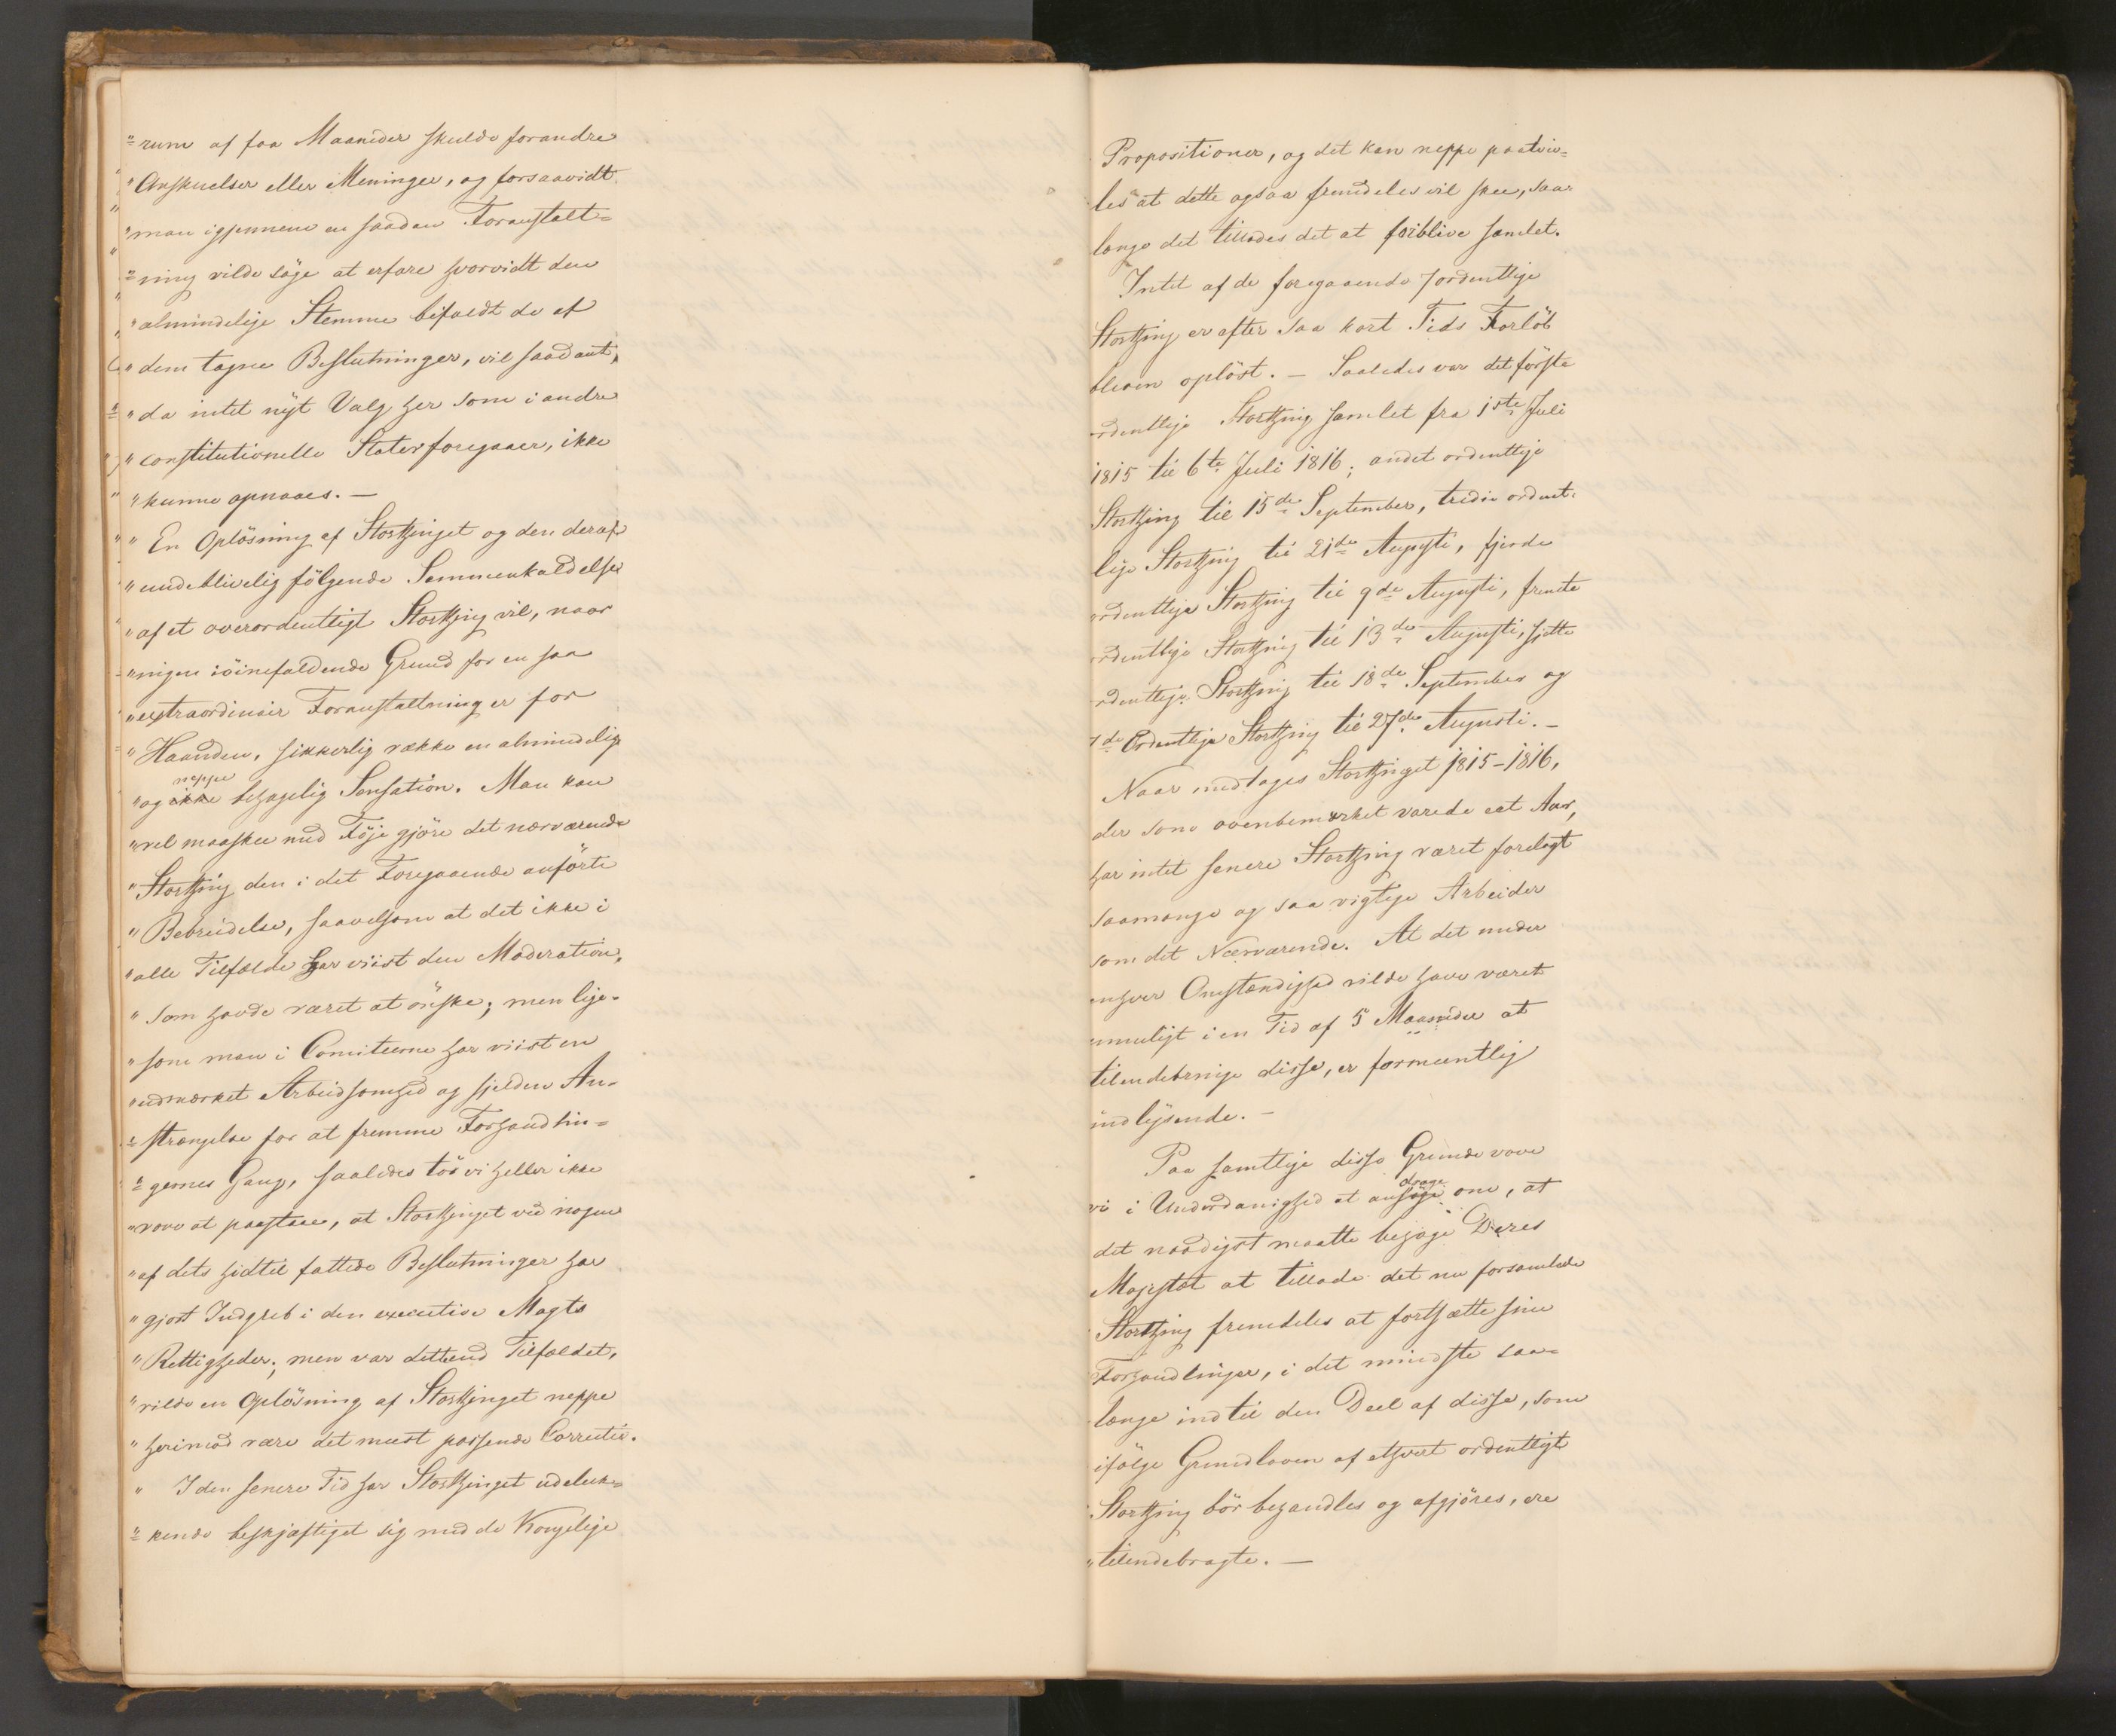 "rum af faa Maaneder skulde forandre
"Anskuelser eller Meninger, og forsaavidt
"man igjennem en saadan Foranstalt=
"ning vilde söge at erfare hvorvidt den
"almindelige Stemme bifaldt de af
"dem tagne Beslutninger, vil saadant,
"da intet nÿt Valg her som i andre
"constitutionelle Stater foregaaer, ikke
"kunne opnaaes. —
"En Oplösning af Storthinget og den deraf
"uudeblivelig fölgende Sammenkaldelse
"af et overordentligt Storthing vil, naar
"ingen iöinefaldende Grund for en saa
"extraordinair Foranstaltning er for
"Haanden, sikkerlig vække en almindelig
neppe
"og ikke behagelig Sensation. Man kan
"vel maaskee med Föje gjöre det nærværende
"Storthing den i det Foregaaende anförte
"Bebreidelse, saavelsom at det ikke i
"alle Tilfælde har viist den Moderation,
"som havde været at önske; men lige-
"som man i Comiteerne har viist en
"udmærket Arbeidsomhed og sjelden An-
"strængelse for at fremme Forhandlin=
"gernes Gang, saaledes tör vi heller ikke
"vove at paastaae, at Storthinget ved nogen
"af dets hidtil fattede Beslutninger har
"gjort Indgreb i den executive Magts
"Rettigheder; men var dette end Tilfældet,
"vilde en Oplösning af Storthinget neppe
"herimod være det meest passende Correctiv.
" I den senere Tid har Storthinget udeluk=
"kende beskjæftiget sig med de Kongelige
Propositioner, og det kan neppe paatviv=
les at dette ogsaa fremdeles vil skee, saa
længe det tillades det at forblive samlet.
Intet af de foregaaende 7 ordentlige
Storthing er efter saa kort Tids Forlöb
bleven oplöst. — Saaledes var det förste
ordentlige Storthing samlet fra 1ste Juli
1815 til 6te Juli 1816; andet ordentlige
Storthing til 15de September, tredie ordent-
lige Storthing til 21de Augusti, fjerde
ordentlige Storthing til 9de Augusti, femte
ordentlige Storthing til 13de Augusti, sjette
ordentlige Storthing til 18de September og
7de Ordentlige Storthing til 27de Augusti. —
Naar undtages Storthinget 1815-1816,
der som ovenbemærket varede eet Aar,
har intet senere Storthing været forelagt
saamange og saa vigtige Arbeider
som det Nærværende. At det under
enhver Omstændighed vilde have været
umuligt i en Tid af 5 Maaneder at
tilendebringe disse, er formeentlig
indlÿsende. —
Paa samtlige disse Grunde vove
drage
vi i Underdanighed at ansöge om, at
det naadigst maatte behage Deres
Majestæt at tillade det nu forsamlede
Storthing fremdeles at fortsætte sine
Forhandlinger, i det mindste saa=
længe indtil den Deel af disse, som
ifölge Grundloven af ethvert ordentligt
Storthing bör behandles og afgjöres, ere
"tilendebragte. —